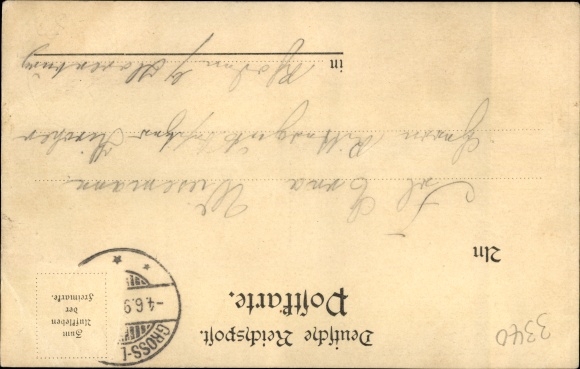 Deutsche Reichspost.
Postkarte.
Zum
Aufkleben
der
Freimarke.
GROSS-L
-4.6.9
An
Frl Erna Wiesemann
Herrn Rittergutsbesitzer
in
3340